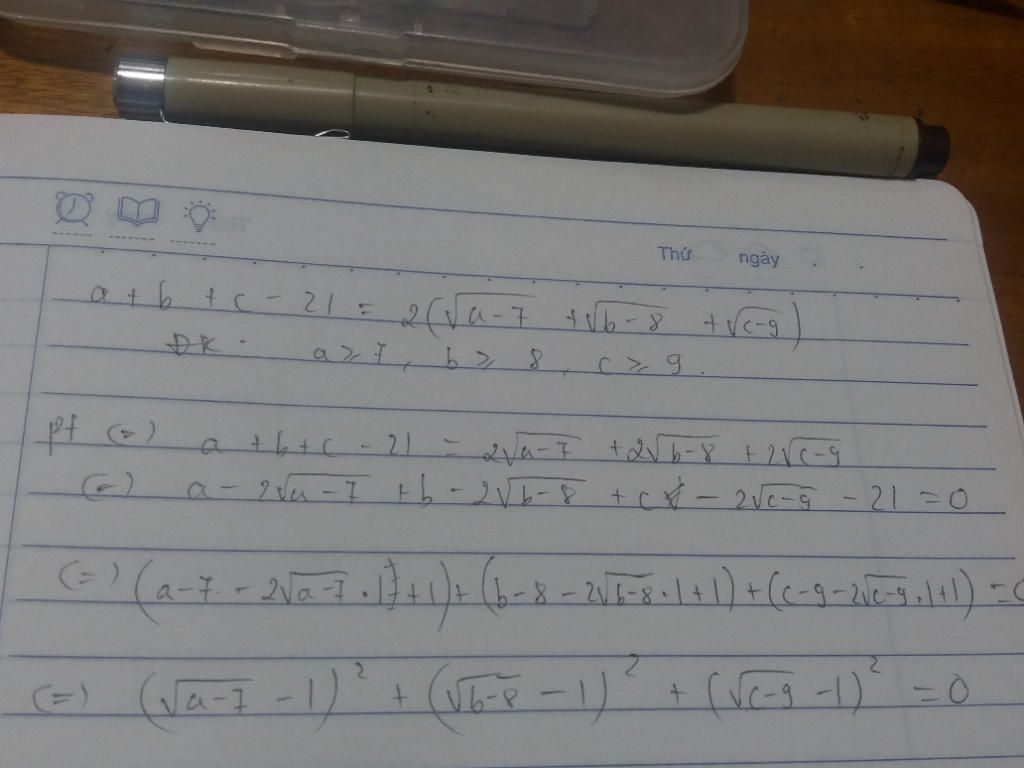 Thứ ngày
a + b + c - 21 = 2(√(a-7) + √(b-8) + √(c-9))
ĐK: a ≥ 7, b ≥ 8, c ≥ 9.
pt (=) a + b + c - 21 = 2√(a-7) + 2√(b-8) + 2√(c-9)
(=) a - 2√(a-7) + b - 2√(b-8) + c - 2√(c-9) - 21 = 0
(=) (a-7 - 2√(a-7) · 1 + 1) + (b-8 - 2√(b-8) · 1 + 1) + (c-9 - 2√(c-9) · 1 + 1) = 0
(=) (√(a-7) - 1)² + (√(b-8) - 1)² + (√(c-9) - 1)² = 0